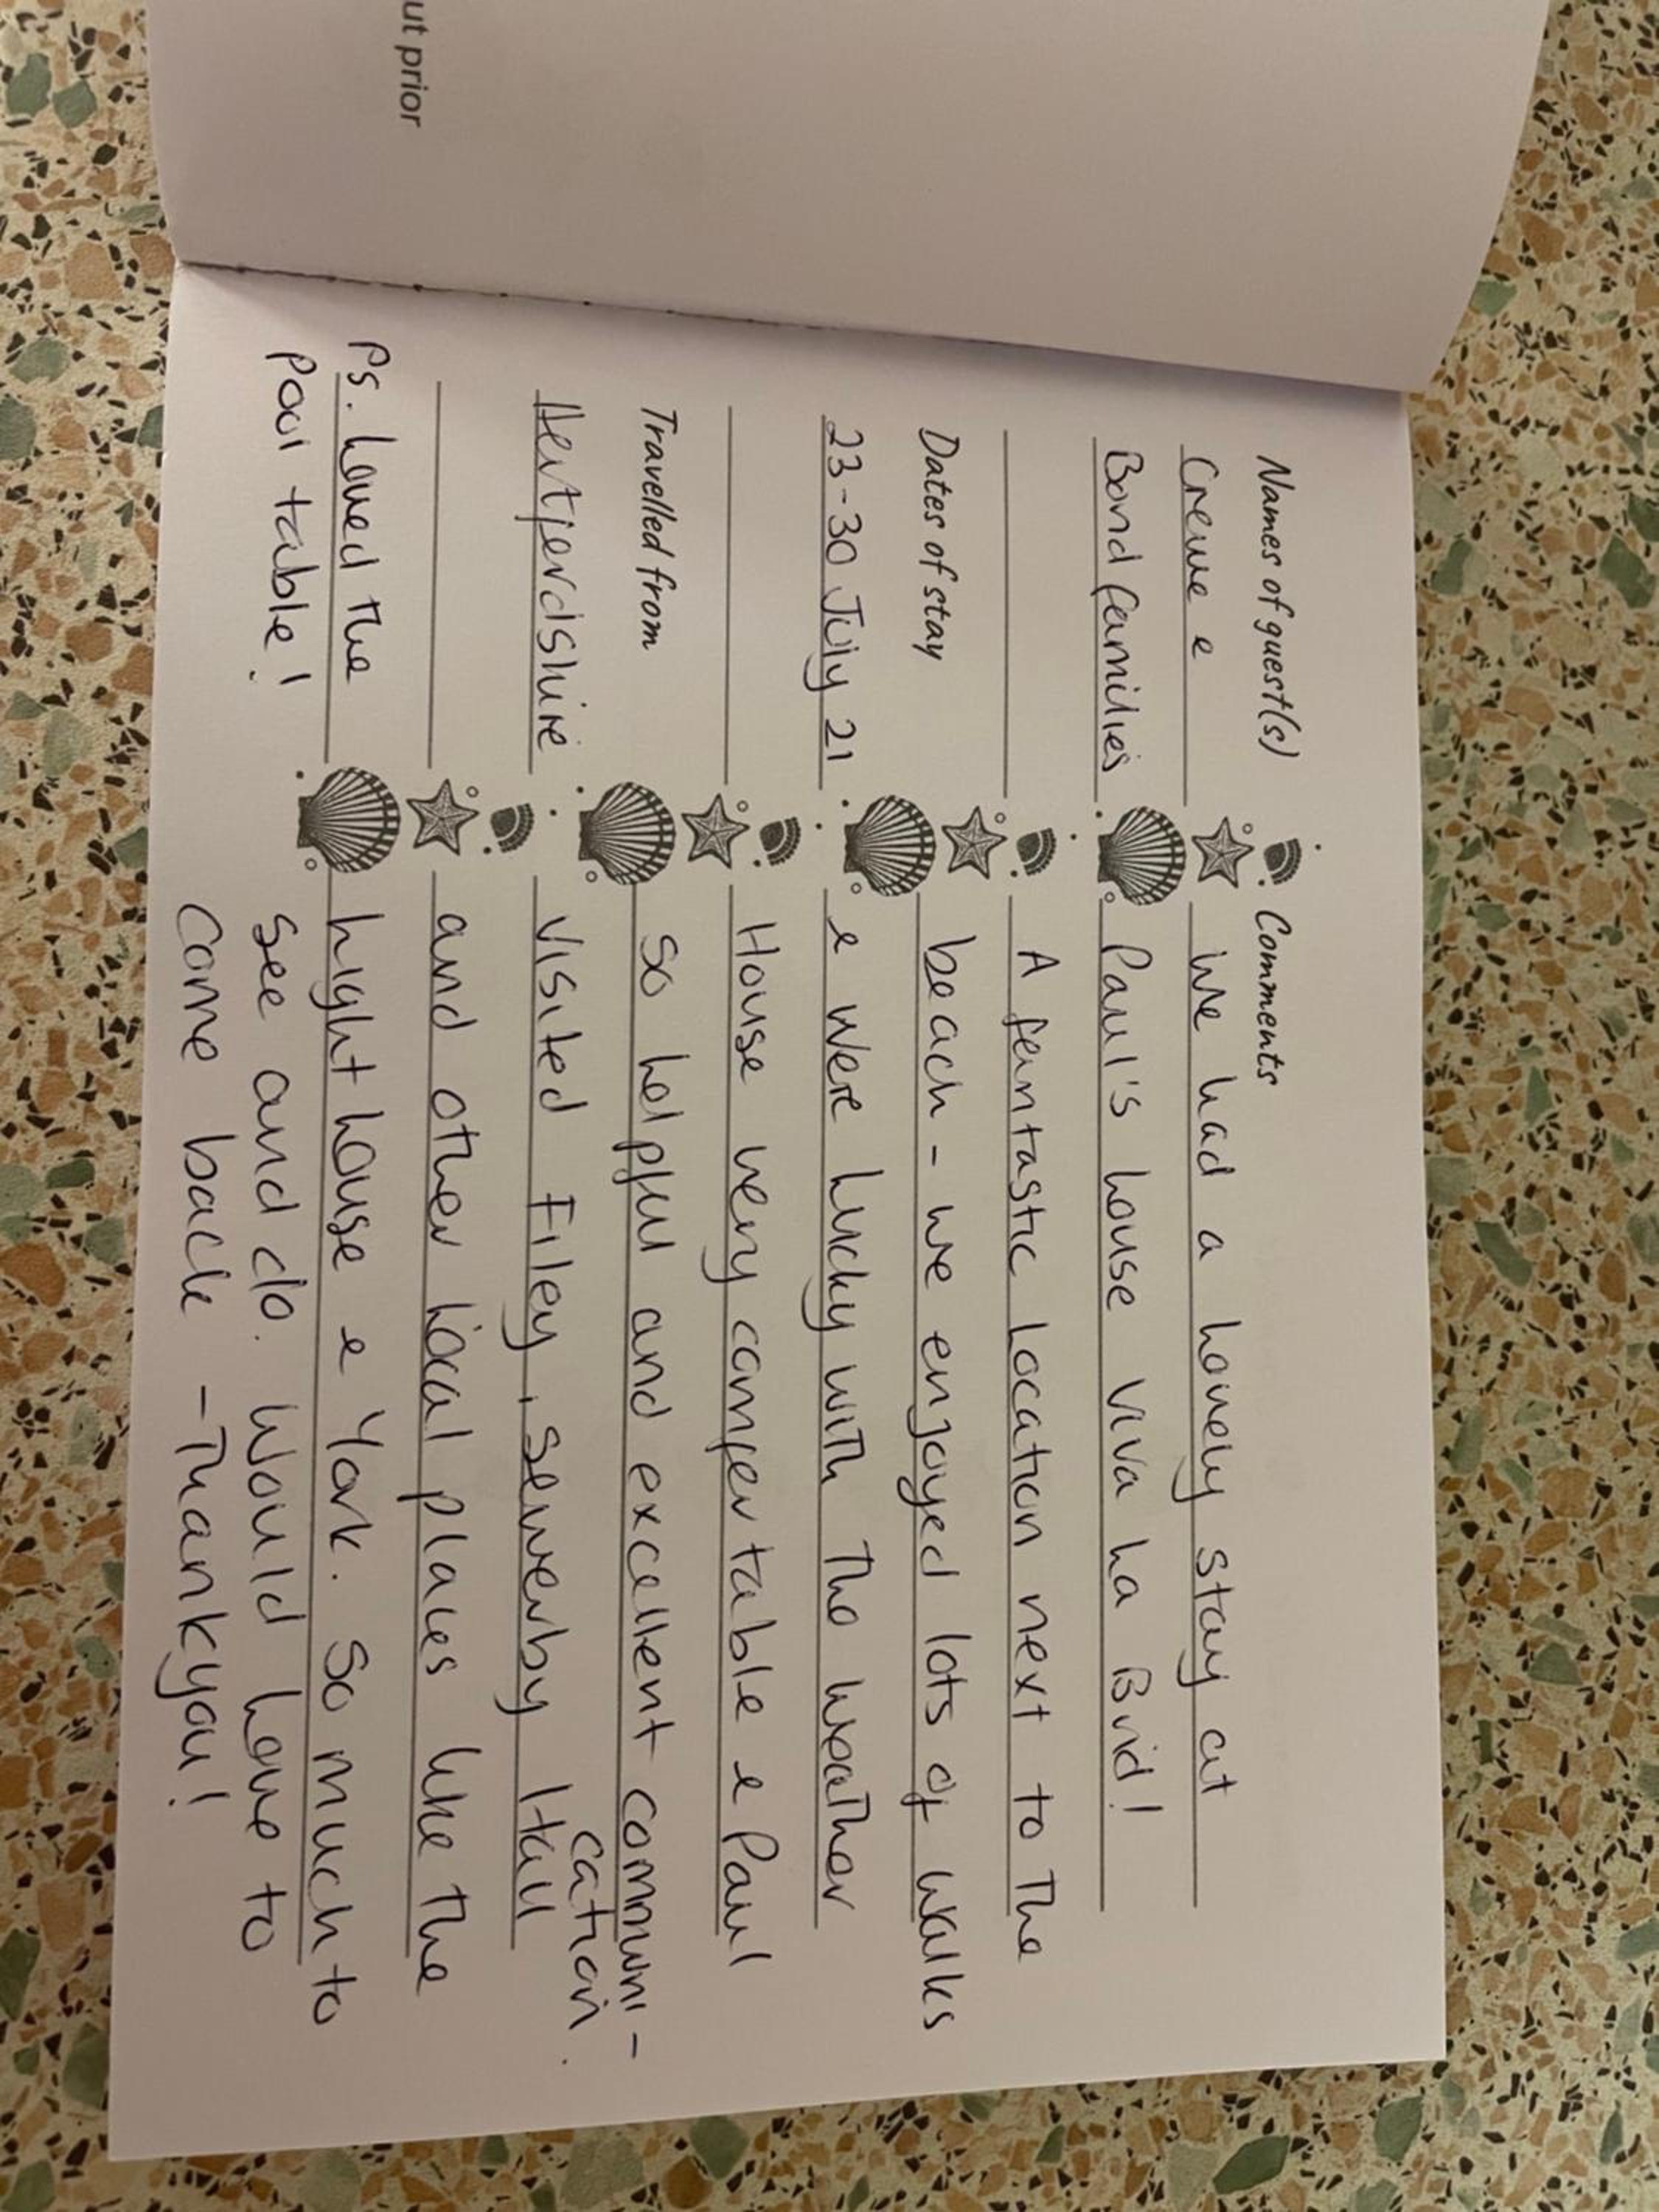 ut prior
Names of guest(s)
Crewe e
Bond families
Dates of stay
23-30 July 21
Travelled from
Hertfordshire
Ps. Loved the
pool table!
Comments
We had a lovely stay at
Paul's house Viva La Brid!
A fantastic location next to the
beach - we enjoyed lots of walks
e were lucky with the weather
House very comfortable e Paul
so helpful and excellent communi-
cation.
Visited Filey, Sewerby Hall
and other local places like the
lighthouse e York. So much to
see and do. Would love to
come back - Thankyou!